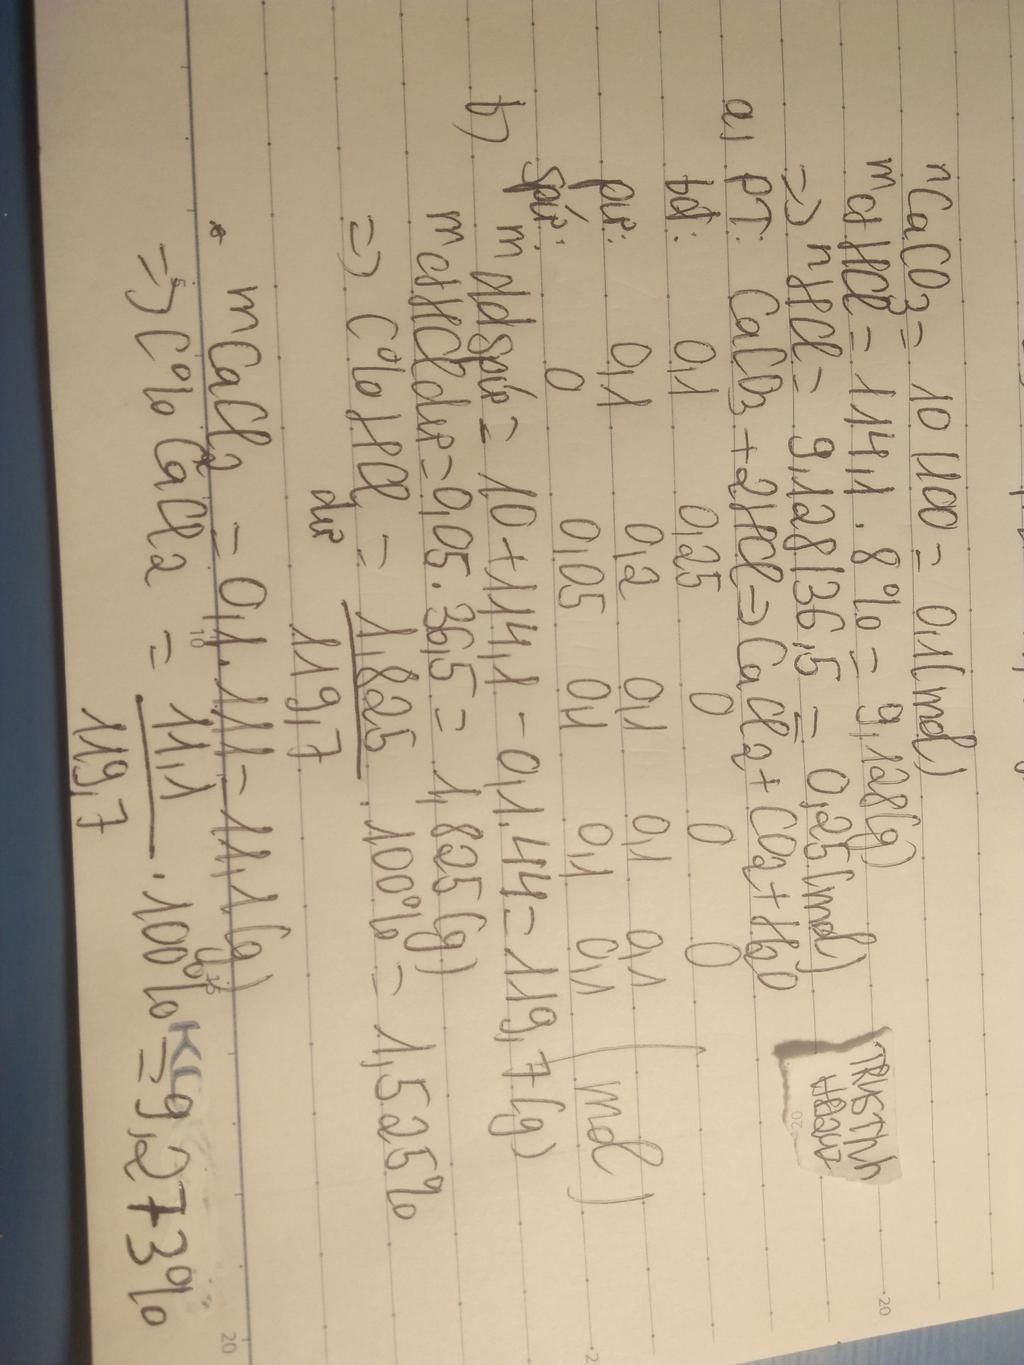 nCaCO3 = 10/100 = 0,1(mol)
mctHCl = 114,1 . 8% = 9,128(g)
=> nHCl = 9,128/36,5 = 0,25(mol)
a, PT: CaCO3 + 2HCl => CaCl2 + CO2 + H2O
bđ: 0,1 0,25 0 0 0
pư: 0,1 0,2 0,1 0,1 0,1 (mol)
spư: 0 0,05 0,1 0,1 0,1
b) mddspứ = 10 + 114,1 - 0,1.44 = 119,7(g)
mctHCldư = 0,05.36,5 = 1,825(g)
=> C%HCl dư = 1,825/119,7 . 100% = 1,525%
* mCaCl2 = 0,1.111 = 11,1(g)
=> C% CaCl2 = 11,1/119,7 . 100% = 9,273%